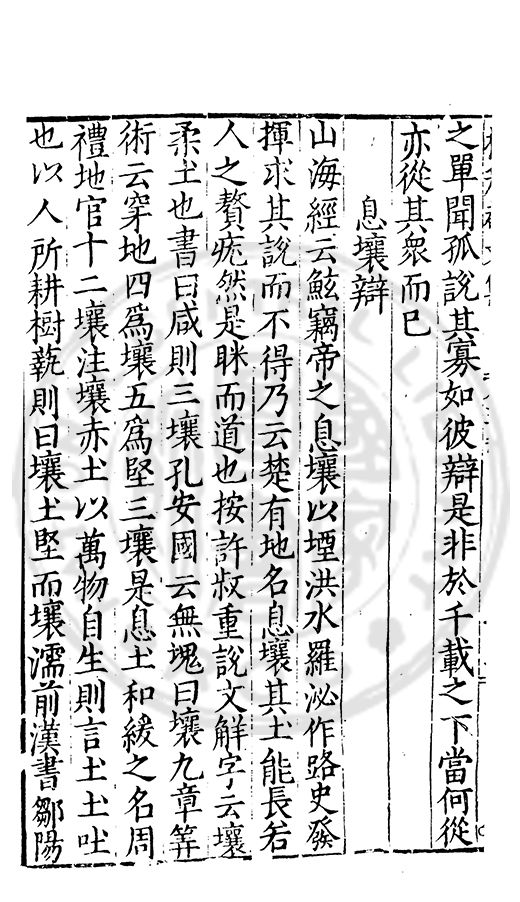 之單聞孤說其寡如彼辯是非於千載之下當何從
亦從其衆而已
息壤辯
山海經云鮌竊帝之息壤以堙洪水羅泌作路史發
揮求其說而不得乃云楚有地名息壤其土能長若
人之贅疣然是眯而道也按許叔重說文解字云壤
柔土也書曰咸則三壤孔安國云無塊曰壤九章筭
術云穿地四爲壤五爲堅三壤是息土和緩之名周
禮地官十二壤注壤赤土以萬物自生則言土土吐
也以人所耕樹蓺則曰壤土堅而壤濡前漢書鄒陽